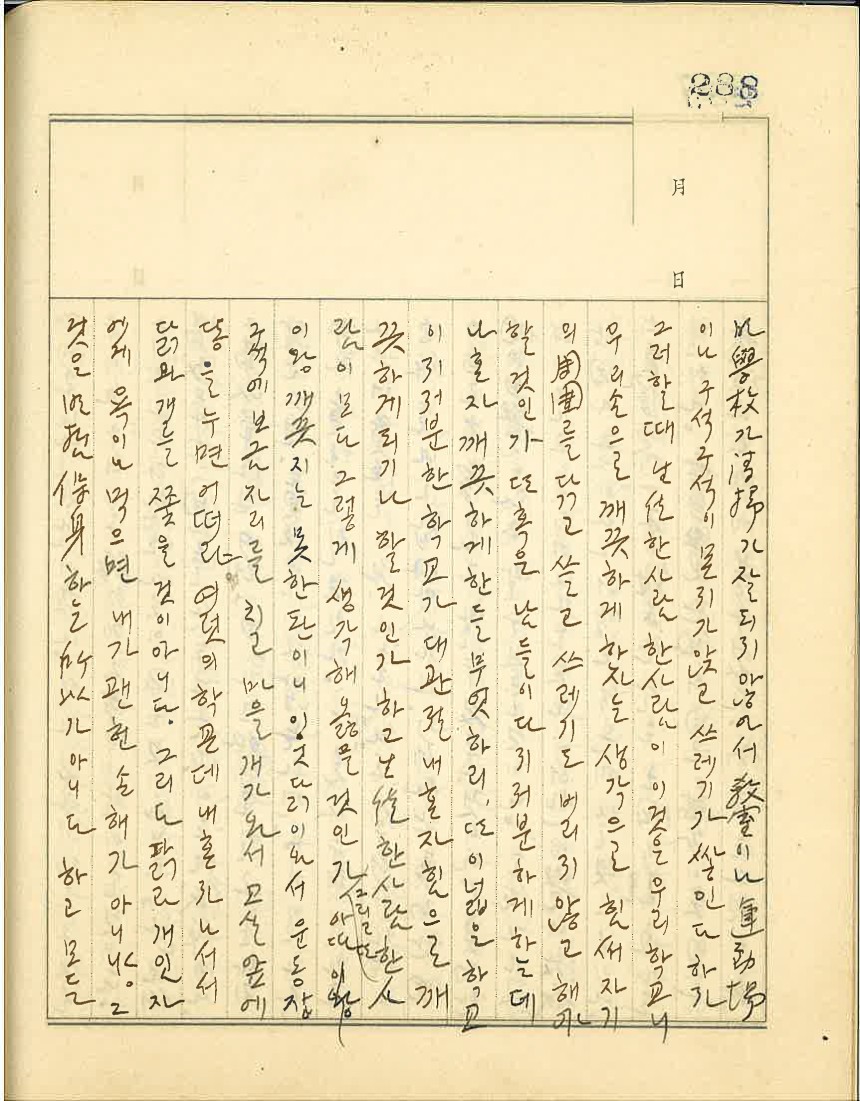 288
月
日
學校가 淸掃가 잘되지 않아서 敎室이나 運動場
이나 구석구석이 몬지가 앉고 쓰레기가 쌓인다 하자
그러할 때 한사람 한사람이 이것은 우리 학교니
우리손으로 깨끗하게 하자는 생각으로 힘써 자기
의 周圍를 닦고 쓸고 쓰레기도 버리지 않고 해야
할 것인가 또 혹은 남들이 다 지저분하게 하는데
나 혼자 깨끗하게 한들 무엇하리, 또 이 넓은 학교
이 지저분한 학교가 대관절 내 혼자 힘으로 깨
끗하게 되기나 할 것인가 하고 한사람 한사
람이 모다 그렇게 생각해 옳을 것인가 그리고 또 아따 이왕
이왕 깨끗지는 못한 판이니 이웃 다리이와서 운동장
구석에 보금자리를 치고 마을 개가 와서 교실 앞에
똥을 누면 어떠랴 여럿의 학교인데 내 혼자 나서서
닭와 개를 쫓을 것이 아니다. 그리다 닭과 개 임자
에게 욕이나 먹으면 내가 괜헌 손해가 아니냐, 그
것은 明哲保身하는 所以가 아니다 하고 모든